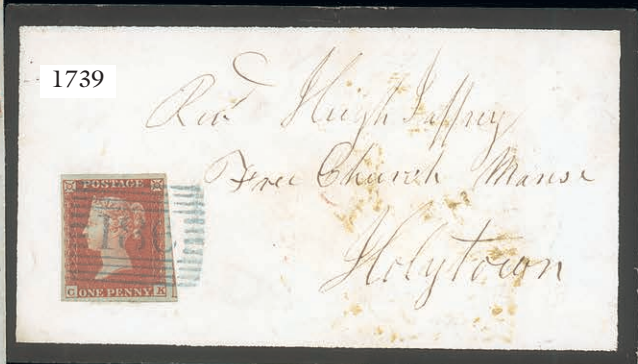 1739
Revd Hugh Jaffrey
Free Church Manse
Holytown
POSTAGE
C ONE PENNY K